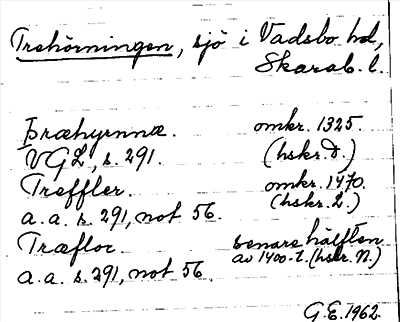 Trehörningen, sjö i Vadsbo hd,
Skarab. l.
Þræhyrnnæ. omkr. 1325.
VGL, s. 291. (hskr. D.)
Træffler. omkr. 1470.
a.a. s. 291, not 56. (hskr. L.)
Træflor. senare hälften
a.a. s. 291, not 56. av 1400-t. (hskr. N.)
G.E. 1962.